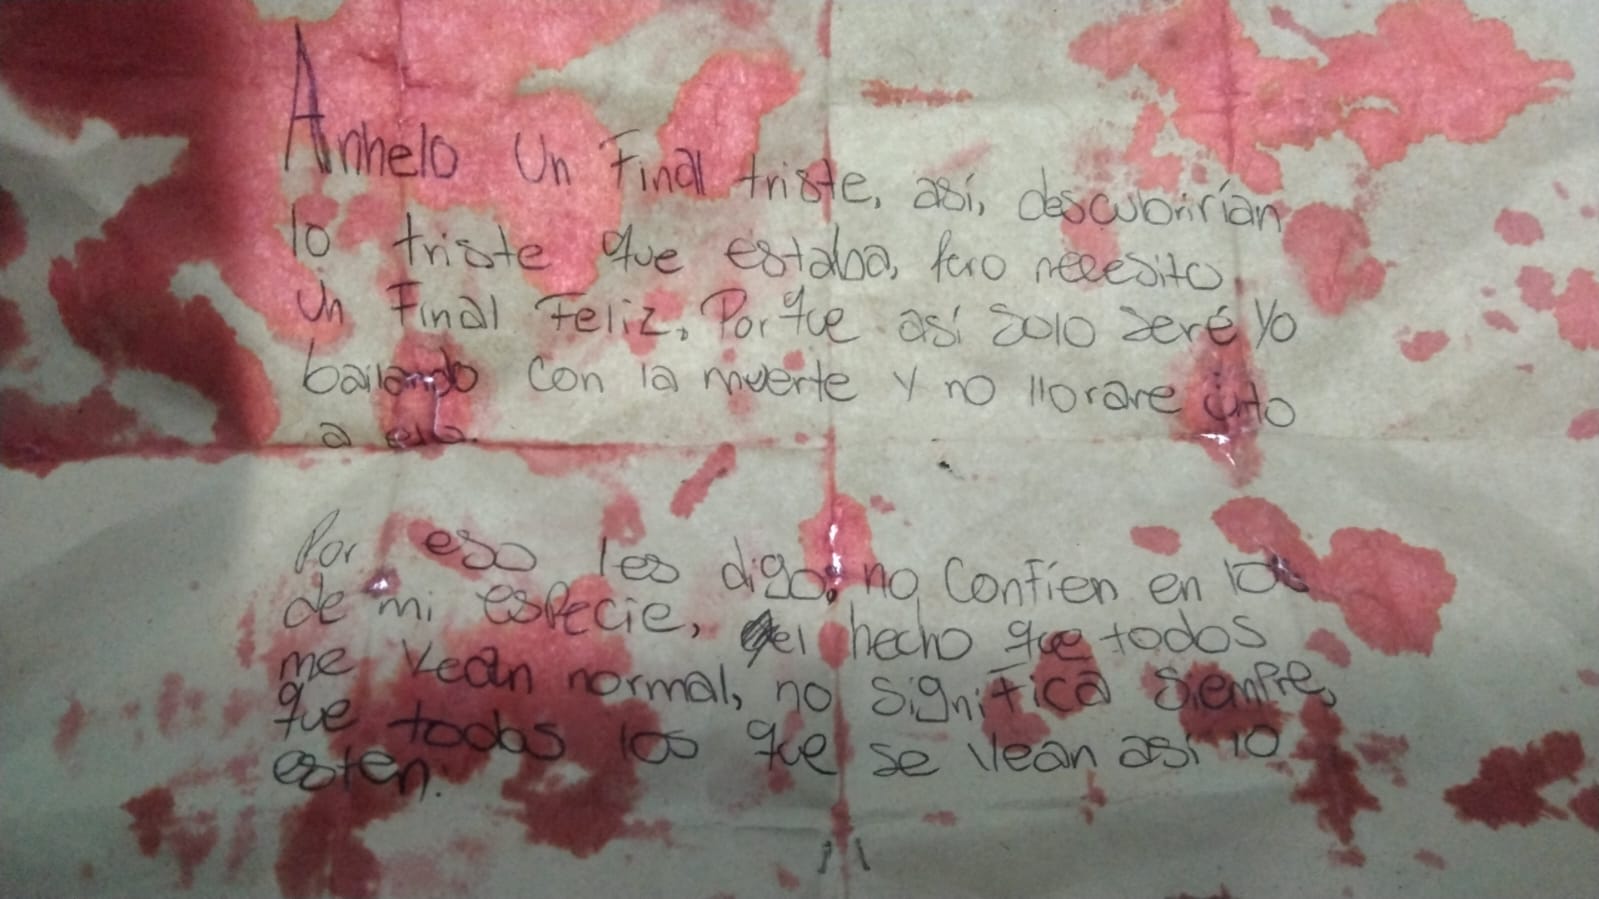 Anhelo un Final triste, así, descubrirían
lo triste que estaba, pero necesito
un Final Feliz, Porque así solo seré yo
bailando con la muerte y no llorare junto
a ella.
Por eso les digo, no confíen en los
de mi especie, el hecho que todos
me vean normal, no significa siempre,
que todos los que se vean así lo
esten.